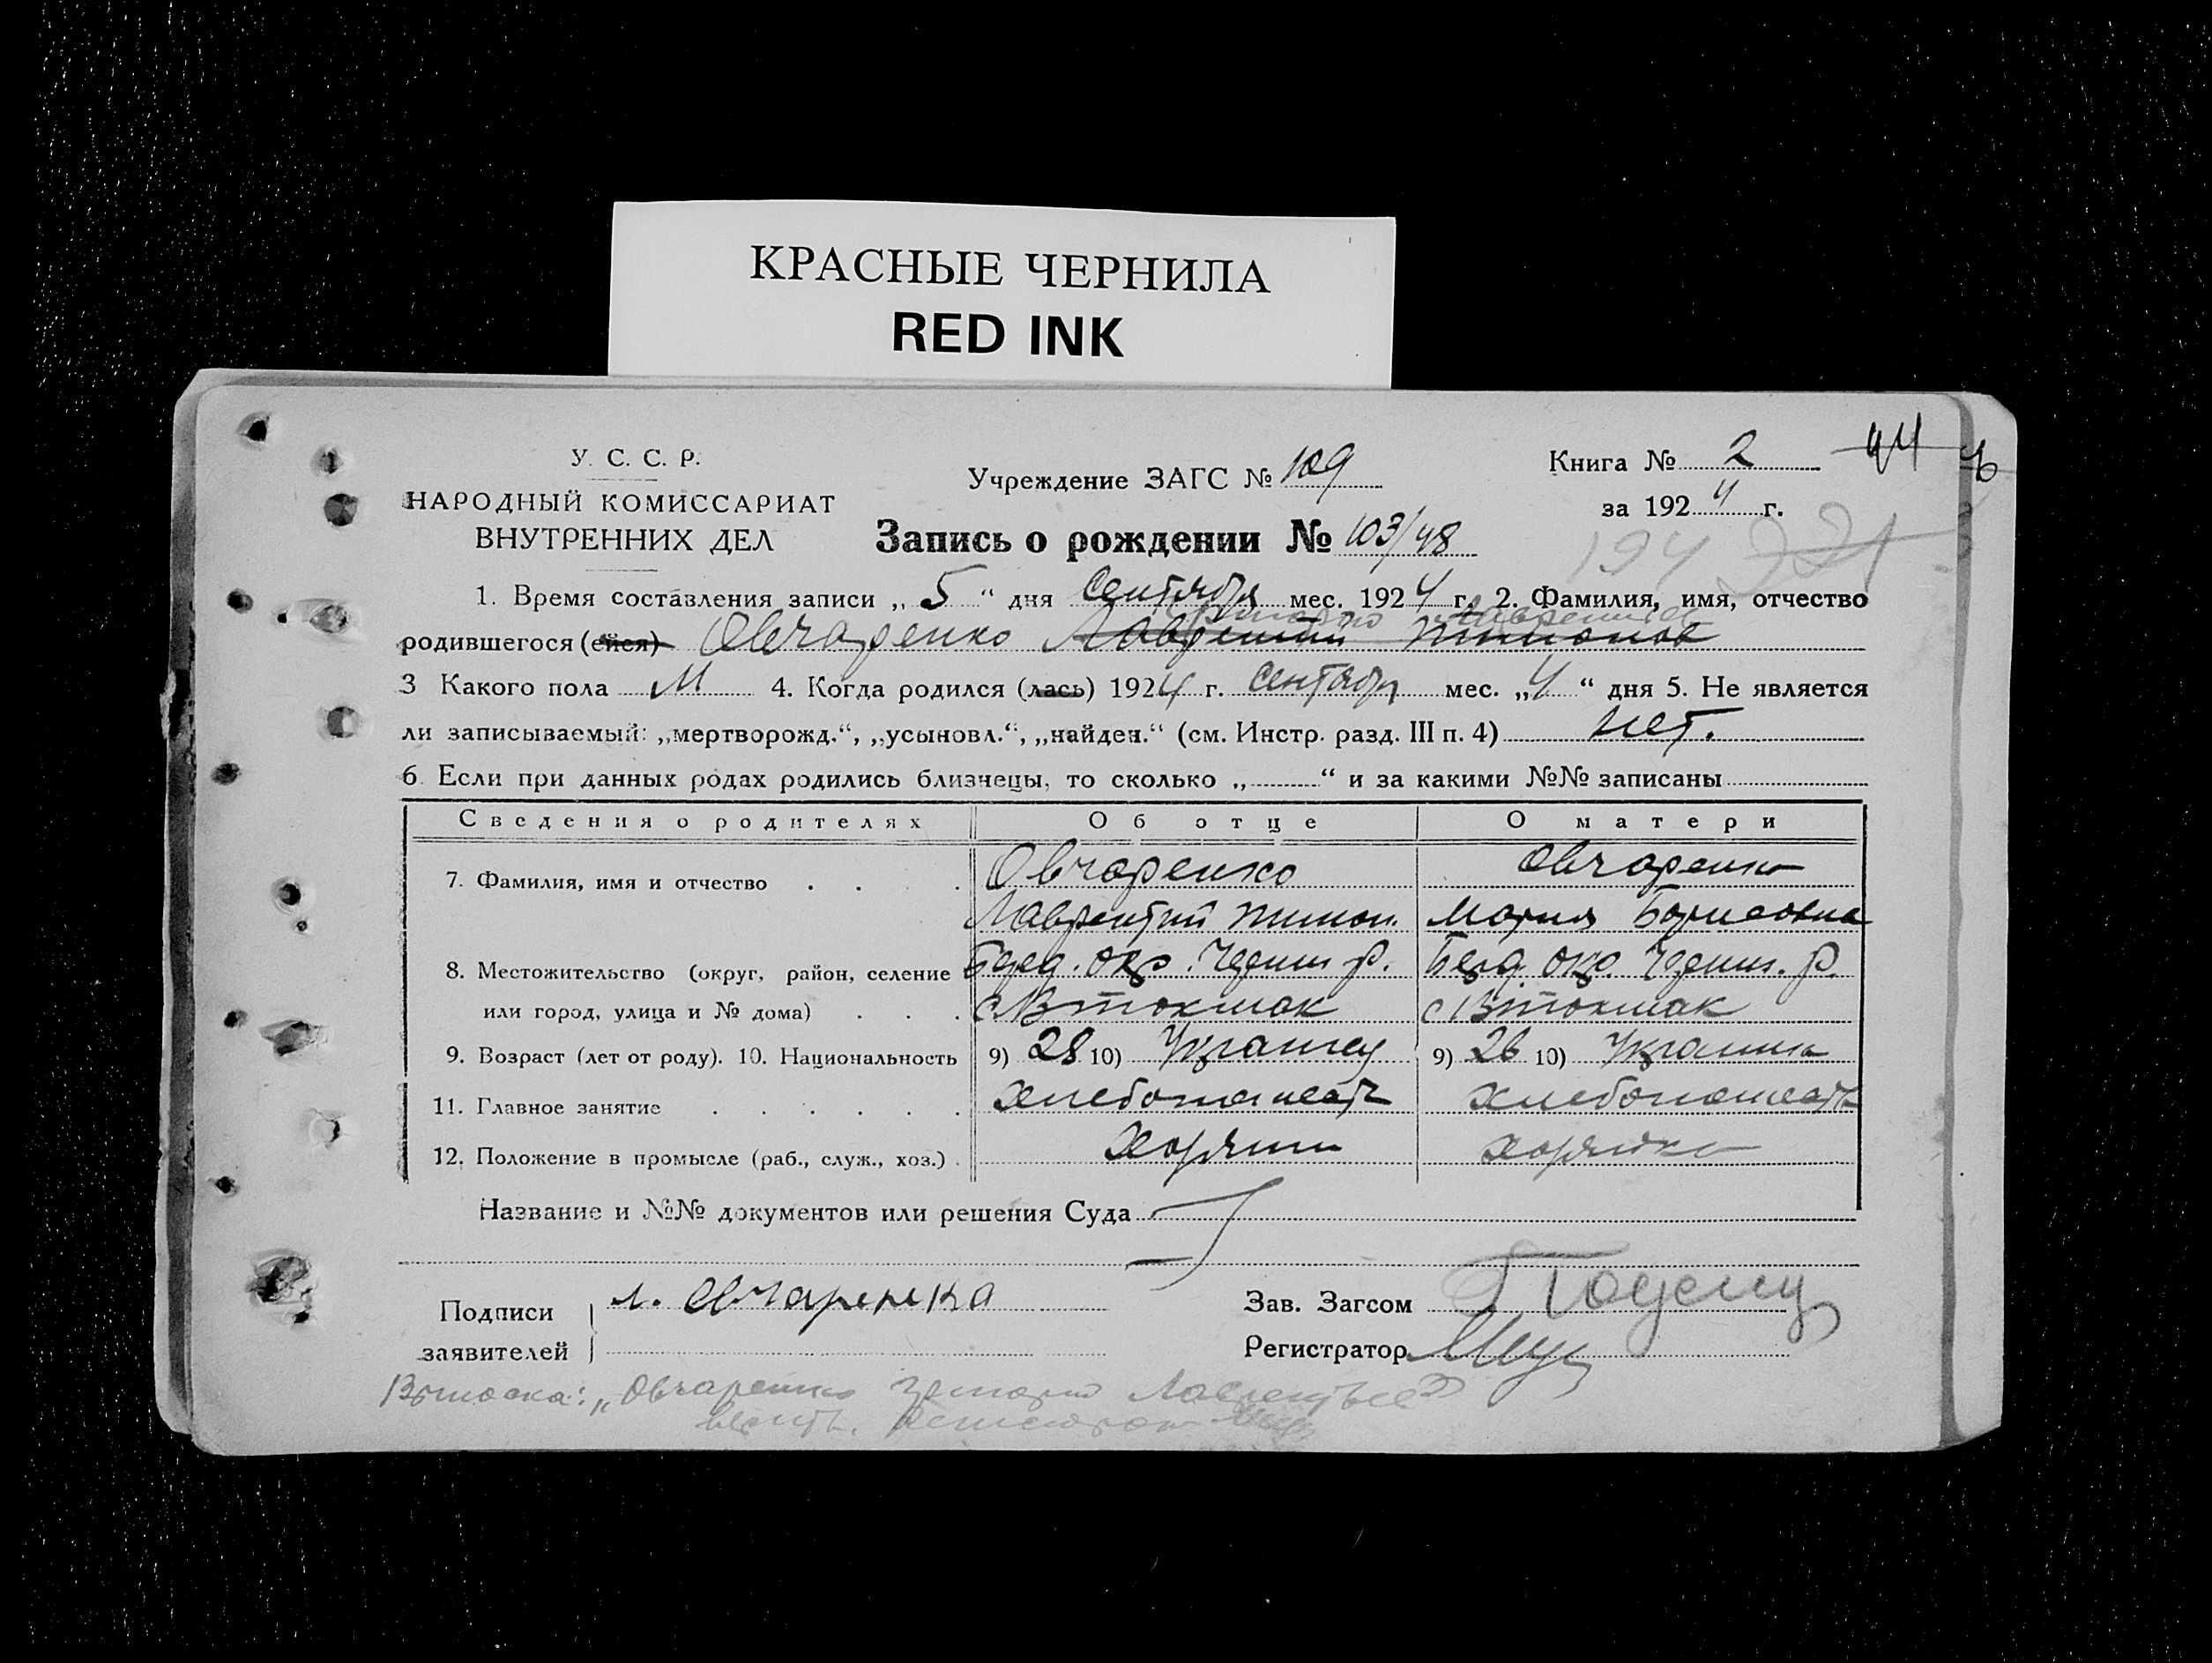 КРАСНЫЕ ЧЕРНИЛА
RED INK
У. С. С. Р.
НАРОДНЫЙ КОМИССАРИАТ
ВНУТРЕННИХ ДЕЛ
Учреждение ЗАГС № 109
Книга № 2
44
за 1924 г.
Запись о рождении № 103/48
194 221
1. Время составления записи „ 5 “ дня Сентября мес. 1924 г. 2. Фамилия, имя, отчество
родившегося (ейся) Овчаренко Лаврентий Тимонов
3 Какого пола М 4. Когда родился (лась) 1924 г. Сентября мес. „4“ дня 5. Не является
ли записываемый: „мертворожд.“, „усыновл.“, „найден.“ (см. Инстр. разд. III п. 4) нет.
6. Если при данных родах родились близнецы, то сколько „ “ и за какими №№ записаны
Сведения о родителях Об отце О матери
7. Фамилия, имя и отчество Овчаренко Овчаренко
Лаврентий Тимон. Мария Борисовна
8. Местожительство (округ, район, селение Берд. окр. Черниг. р. Берд. окр. Черниг. р.
или город, улица и № дома) с Втокмак с Втокмак
9. Возраст (лет от роду). 10. Национальность 9) 28 10) Украинец 9) 26 10) Украинка
11. Главное занятие хлебопашест хлебопашест
12. Положение в промысле (раб., служ., хоз.) Хозяин хозяйка
Название и №№ документов или решения Суда
Подписи Л. Овчаренка Зав. Загсом
заявителей Регистратор
„Овчаренко Лаврентьев“